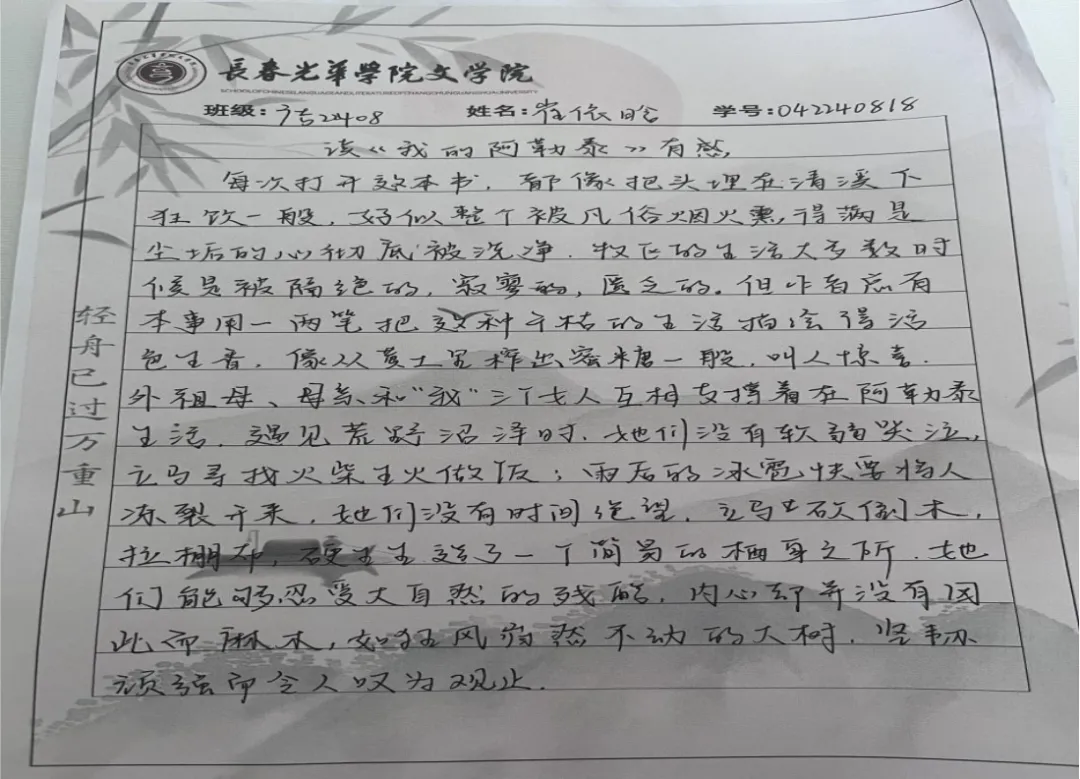 長春光華學院文学院
SCHOOL OF CHINESE LANGUAGE AND LITERATURE OF CHANGCHUN GUANGHUA UNIVERSITY
班级:语22408 姓名:崔依晗 学号:042240818
读《我的阿勒泰》有感
每次打开这本书,都像把头埋在清溪下
狂饮一般,好似整个被凡俗烟火熏得满是
尘垢的心彻底被洗净.牧区的生活大多数时
候是被隔绝的,寂寥的,匮乏的。但作者总有
本事用一两笔把这种干枯的生活描绘得活
色生香,像从黄土里榨出蜜糖一般,叫人惊喜.
外祖母、母亲和"我"三个女人互相支撑着在阿勒泰
生活.遇见荒野沼泽时.她们没有软弱哭泣,
立马寻找火柴生火做饭;雨后的冰雹快要将人
冻裂开来,她们没有时间绝望.立马砍倒木,
拉棚布,硬生生造了一个简易的栖身之所.她
们能够忍受大自然的残酷,内心却并没有因
此而麻木,如狂风岿然不动的大树.坚韧
顽强而令人叹为观止.
轻舟已过万重山